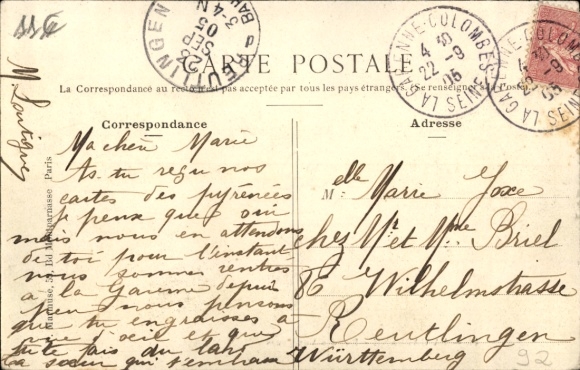 REUTLINGEN
23 SEP 05
3-4 N
CARTE POSTALE
La Correspondance au recto n'est pas acceptée par tous les pays étrangers. Se renseigner à la Poste.
LA GARENNE-COLOMBES
4 30
22 -9
05
LA SEINE
LA GARENNE-COLOMBES
4 30
-9
05
LA SEINE
Correspondance
Adresse
Ma cheri Marie
As-tu reçu nos
cartes des pyrénées
je peux que oui
mais nous en attendons
de toi pour l'instant
nous sommes rentres
a la Garenne depuis
peu nous pensons
que tu engraisses a
vue d'oeil et que
tu te fais du lard
ta soeur qui t'embrasse
Montparnasse Paris
Melle Marie Joxe
chez Mr et Mme Briel
86 Wilhelmstrasse
Reutlingen
Württemberg
92